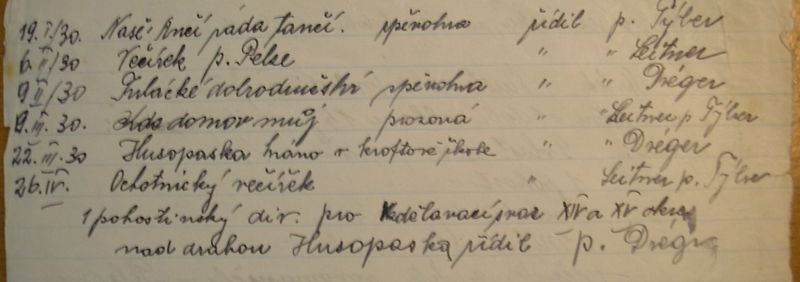 19. I./30. Naše Anči ráda tančí. zpěvohra řídil p. Týber
6. II/30 Večírek p. Pelse " " Leitner
9 II/30 Tulácké dobrodružství zpěvohra " " Dréger
9. III. 30. Kde domov můj prozová " " Leitner p. Týber
22. III. 30 Husopaska hráno v kroftově škole " Dréger
26. IV. Ochotnický večírek " Leitner p. Týber
1 pohostinský div. pro Vzdělavací svaz XIV a XV okres
nad drahou Husopaska řídil p. Drégr